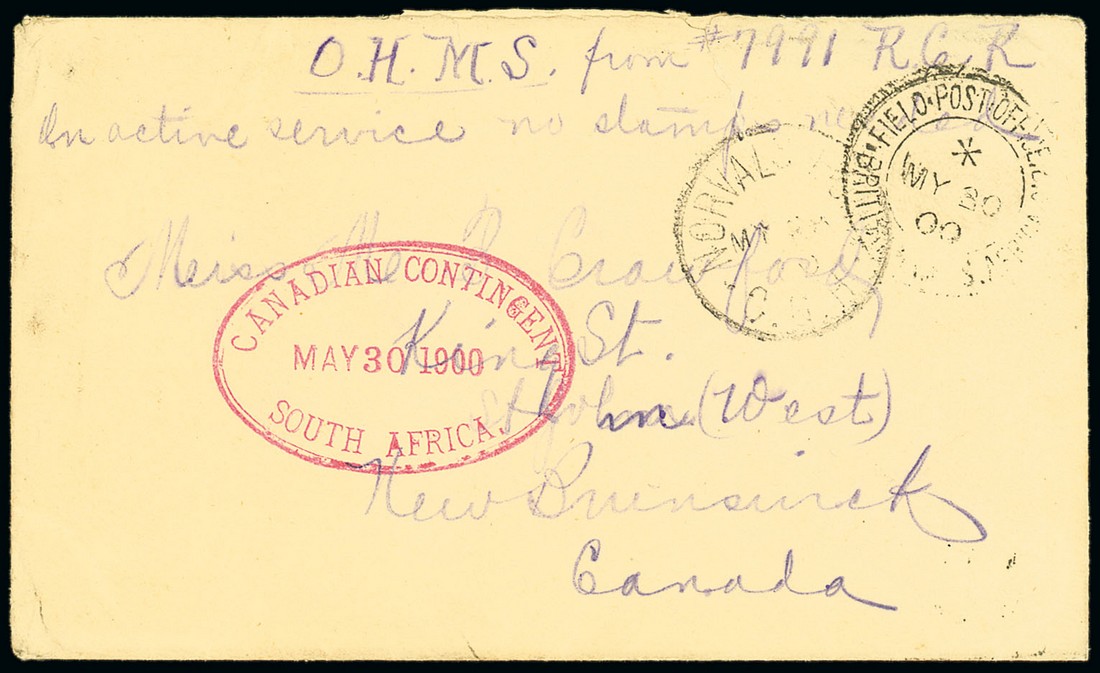 O.H.M.S. from #7991 R.C.R
On active service no stamps needed
BRITISH FIELD·POST OFFICE
*
MY 30
00
NORVALS
MY
Miss
Crawford
CANADIAN CONTINGENT
MAY 30 1900
SOUTH AFRICA.
King St.
St John (West)
New Brunswick
Canada